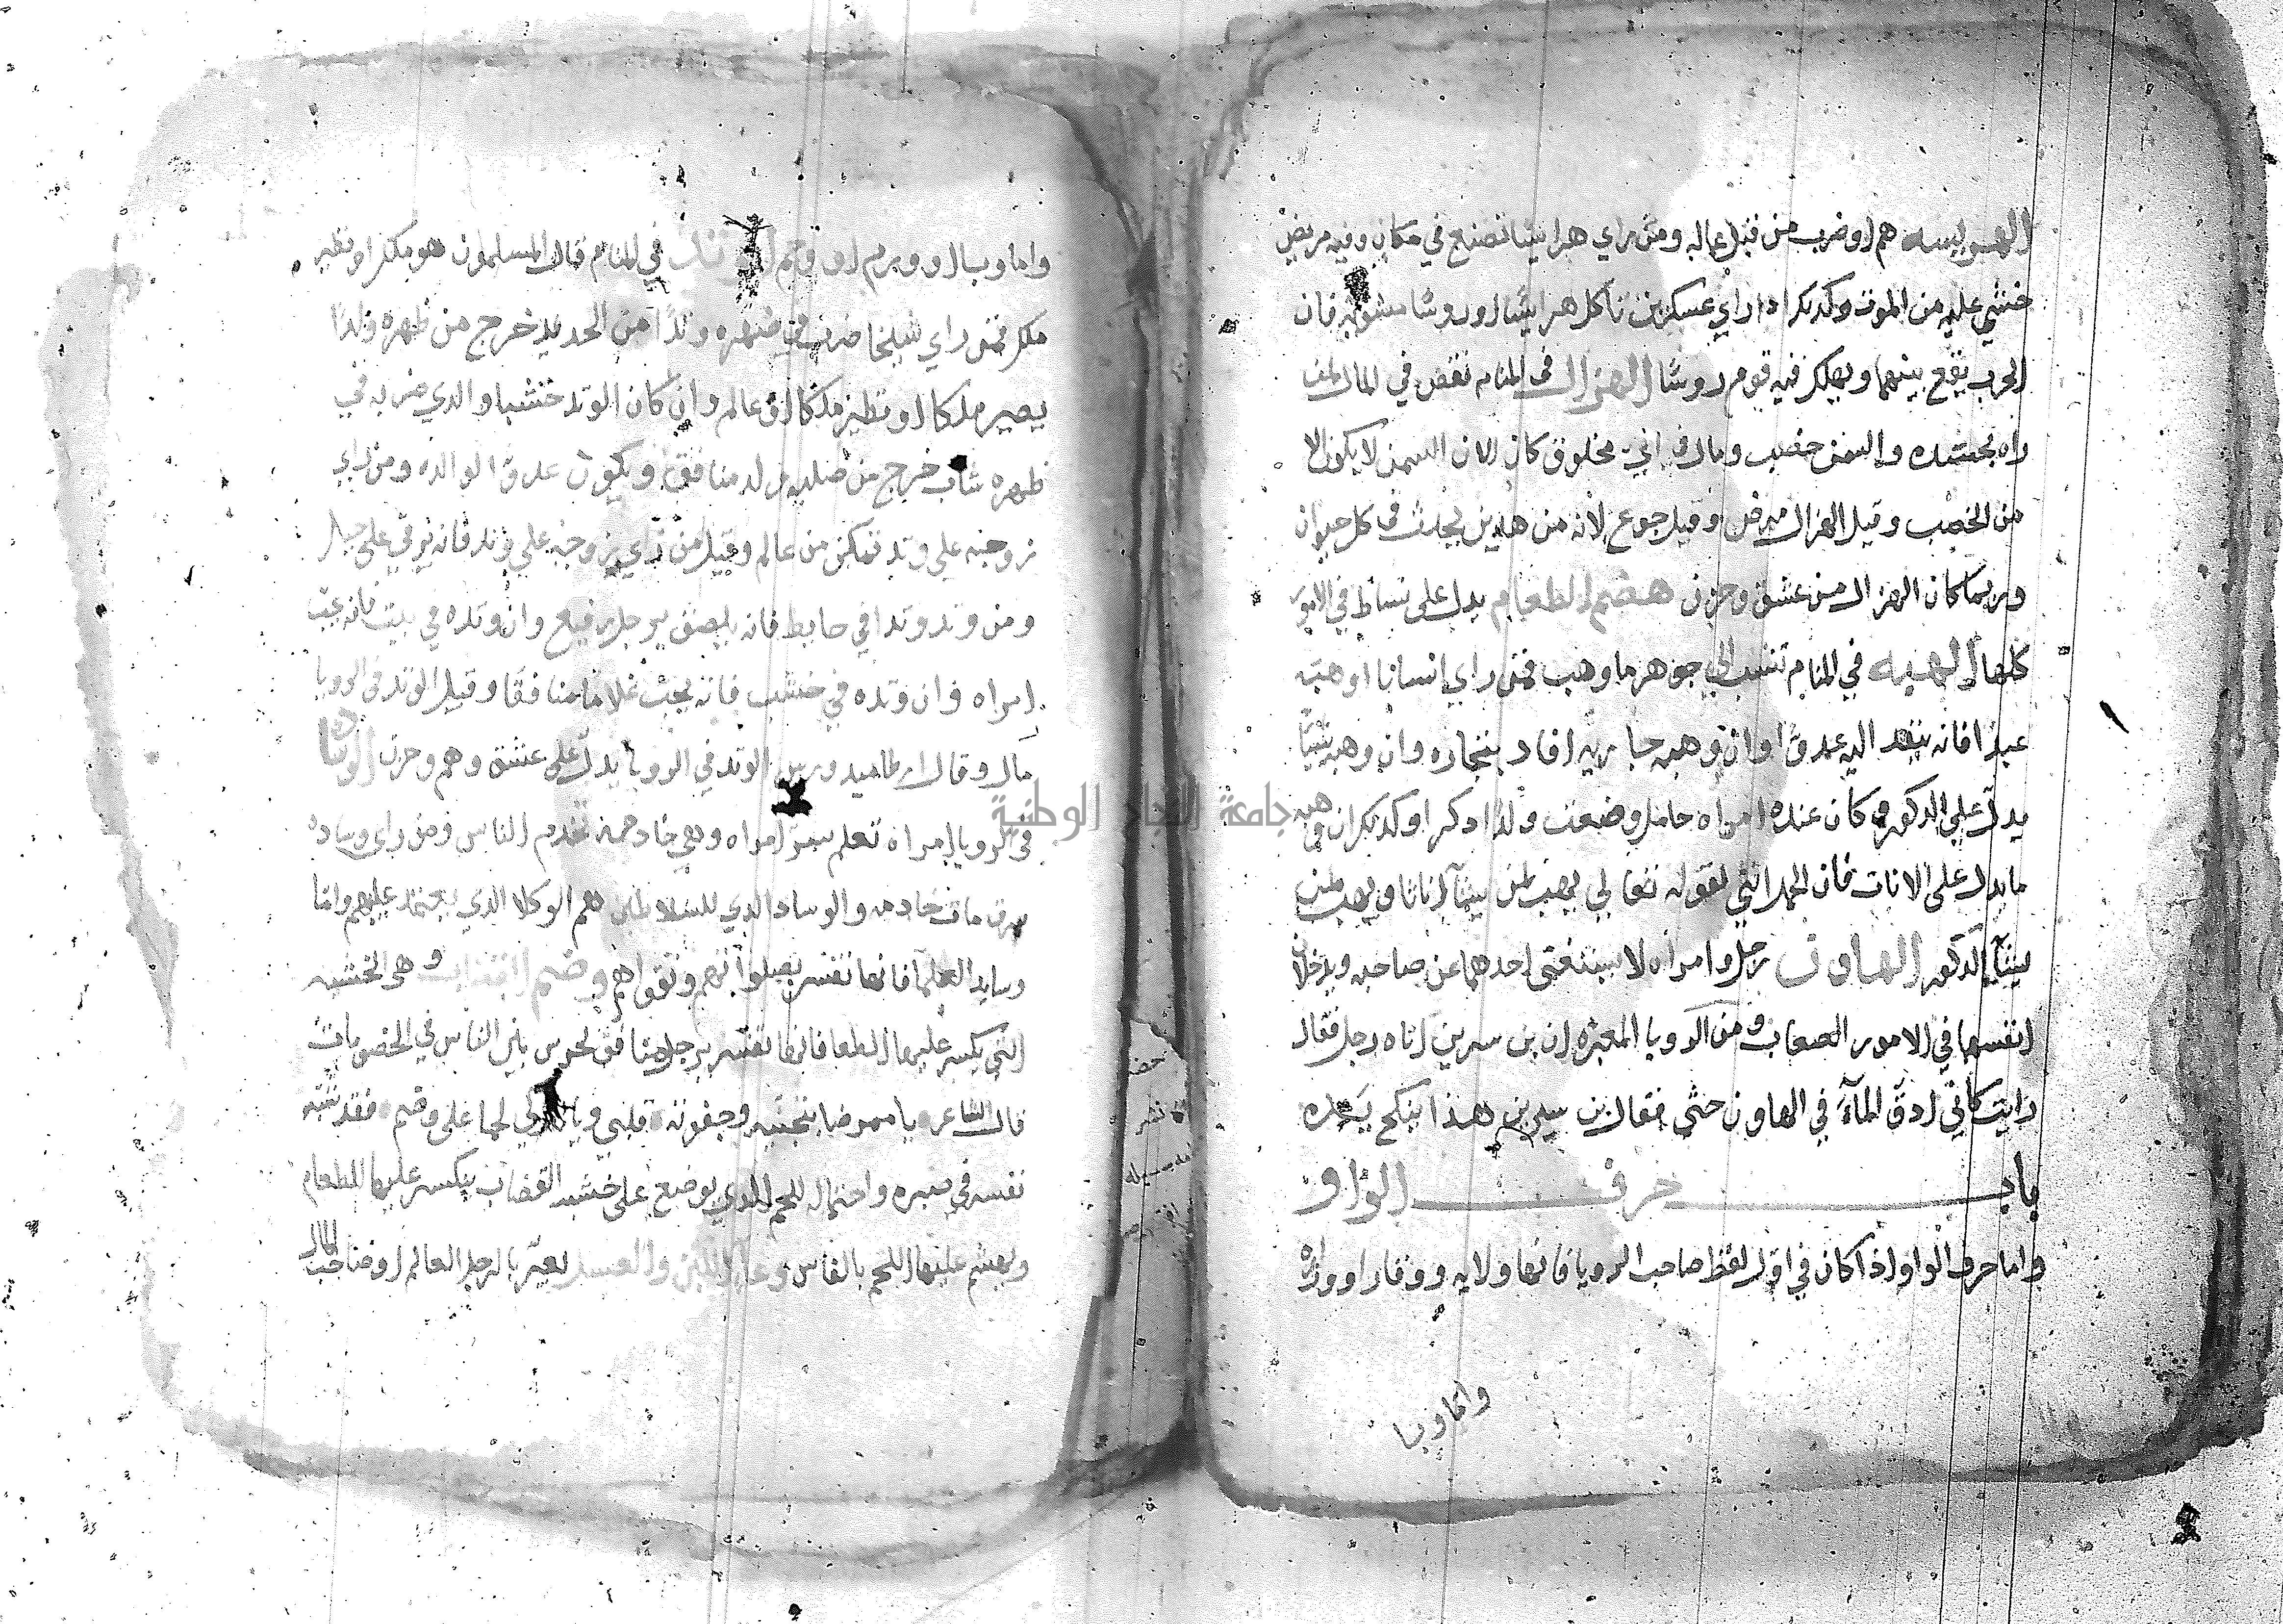 الهريسه هم او ضرب من قبل عماله ومن راي هرايسا تصنع في مكان وفيه مريض
خشي عليه من الموت وكدلك ادا راي عسكرين تاكل هرايسا او روسا مشويه فان
الحرب يقع بينهما ويهلك فيه قوم روسا الهزال في المنام نقص في المال لمن
راه بجسده والسمن خصب ومال في اي مخلوق كان لان السمن لا يكون الا
من الخصب وقيل الهزال مرض وقيل جوع لانه من هدين يحدث في كل حيوان
وربما كان الهزال من عشق وحزن هضم الطعام يدل على نشاط في الامور
كلها الهبه في المنام تنسب الي جوهر ما وهب فمن راي انسانا اوهبه
عبدا فانه ينفد اليه عدوا وان وهبه جاريه افاد تجاره وان وهبه شيا
يدل علي الدكور وكان عنده امراه حامل وضعت ولدا دكرا وكدلك ان وهبه
ما يدل على الانات فان الحمل انثي لقوله تعالي يهب لمن يشآ اناثا ويهب لمن
يشآ الدكور الهاون رجل وامراه لا يستغني احدهما عن صاحبه ويدخلان
انفسهما في الامور الصعاب ومن الرويا المعبره ان بن سرين اتاه رجل فقال
رايت كاني ادق المآء في الهاون حتي فقال بن سيرين هذا ينكح يده
باب حرف الواو
واما حرف الواو اذا كان في اول لفظ صاحب الرويا فانها ولايه ووقار او ورثه
واما وبا
واما وبال او ورم او وخم الوتد في المنام قال المسلمون هو ملك او نظير
ملك فمن راي شيخا ضرب في ظهره وتدا من الحديد خرج من ظهره ولدا
يصير ملكا او نظير ملكا او عالم وان كان الوتد خشبا والدي ضربه في
ظهره شاب خرج من صلبه ولد منافق ويكون عدوا لوالده ومن راي
زوجته على وتد تمكن من عالم وقيل من راي زوجته علي وتد فانه يرقي على جبل
ومن وتد وتدا في حايط فانه يلصق برجل رفيع وان وتده في بيت فانه يحب
امراه وان وتده في خشب فانه يحب غلاما منافقا وقيل الوتد في الرويا
مال وقال ارطاميدورس الوتد في الرويا يدل على عشق وهم وحزن
في الرويا امراه تعلم سر امراه وهي خادمه تخدم الناس ومن راي وساده
سرقت ماتت خادمه والوساد الدي للسلاطين هم الوكلا الدي يعتمد عليهم واما
وسايد العلما فانها تفسر بصلواتهم وتقواهم وضم القصاب وهي الخشبه
التي يكسر عليها الطعام فانها تفسر برجل منافق يحرش بين الناس في الخصومات
قال الشاعر يا ممرضا بتجنيه وجفوته قلبي ويا لحما على وضم فقد شبه
نفسه في صبره واحتمال اللحم الدي يوضع على خشبه القصاب يكسر عليها للطعام
ويهشم عليها اللحم بالفاس وعا اللبن والعسل يعبر بالرجل العالم او صاحب المال
جامعة النجاح الوطنية